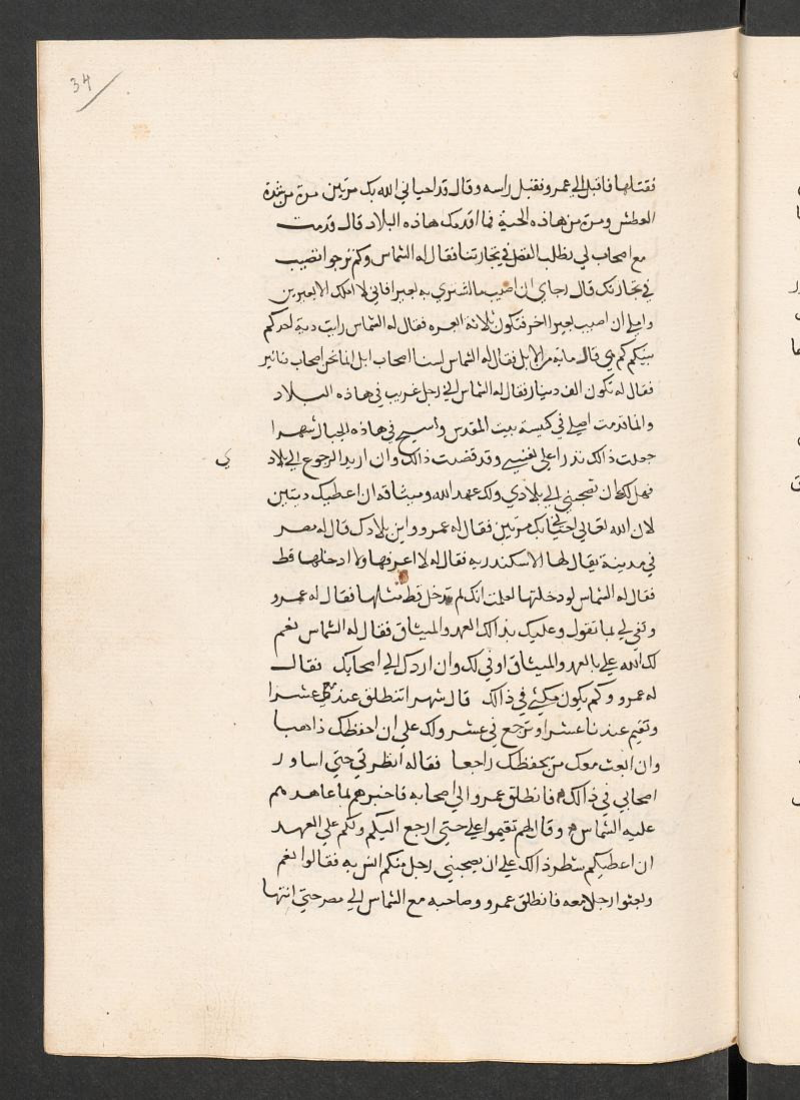 34
فقتلها فاقبل الي عمرو فقبل راسه وقال قد احياني الله بك مرتين مرة من شدة
العطش ومرة من هاذه الحية فما اقدمك هاذه البلاد قال قدمت
مع اصحاب لي نطلب الفضل في تجارتنا فقال له الشماس وكم ترجوا تصيب
في تجارتك قال رجاي ان اصيب ما اشتري به بعيرا فاني لا املك الا بعيرين
واملي ان اصيب بعيرا اخر فتكون ثلاثة ابعره فقال له الشماس رايت دية احدكم
بينكم كم هي قال ماية من الابل فقال له الشماس لسنا اصحاب ابل انما نحن اصحاب دنانير
فقال له تكون الف دينار فقال له الشماس اني رجل غريب في هاذه البلاد
وانما قدمت اصلي في كنيسة بيت المقدس واسيح في هاذه الجبال شهرا
جعلت ذالك نذرا علي نفسي وقد قضيت ذالك وان اريد الرجوع الي بلاد
ي
فهل لك ان تصحبني الي بلادي ولك عهد الله وميثاقه ان اعطيك ديتين
لان الله تعالي احياني بك مرتين فقال له عمرو واين بلادك قال له مصر
في مدينة يقال لها الاسكندريه فقال له لا اعرفها ولا ادخلها قط
فقال له الشماس لو دخلتها لعلمت انك لم تدخل قط مثلها فقال له عمرو
وتفي لي بما تقول وعليك بذالك العهد والميثاق فقال له الشماس نعم
لك الله علي بالعهد والميثاق اوفي لك وان اردك الي اصحابك فقال
له عمرو وكم يكون مكثي في ذالك قال شهرا تنطلق عندكم عشرا
وتقيم عندنا عشرا وترجع في عشر ولك علي ان احفظك ذاهبا
وان ابعث معك من يحفظك راجعا فقاله انظرني حتي اساور
اصحابي في ذالك فانطلق عمرو الي اصحابه فاخبرهم بما عاهدهم
عليه الشماس وقال لهم تقيموا علي حتي ارجع اليكم ولكم علي العهد
ان اعطيكم شطر ذالك علي ان يصحبني رجل منكم انس به فقالوا نعم
وبعثوا رجلا معه فانطلق عمرو وصاحبه مع الشماس الي مصر حتي انتها